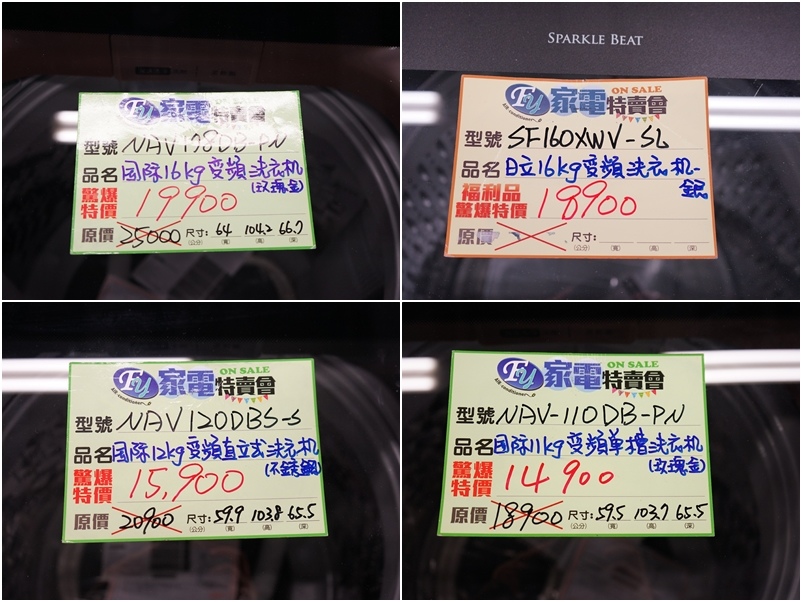 Fu 家電特賣會
型號 NAV178DB-PN
品名 国際16kg变頻洗衣机
(玫瑰金)
驚爆特價 19900
原價 25000 尺寸: 64 104.2 66.7
(公分) (寬) (高) (深)
SPARKLE BEAT
ON SALE
Fu 家電特賣會
air conditioner
型號 SF160XWV-SL
品名 日立16kg变頻洗衣机-
銀
福利品
驚爆特價 18900
原價 尺寸:
(公分) (寬) (高) (深)
ON SALE
Fu 家電特賣會
air conditioner
型號 NAV120DBS-S
品名 国際12kg变頻直立式洗衣机
(不銹鋼)
驚爆特價 15,900
原價 20900 尺寸: 59.9 103.8 65.5
(公分) (寬) (高) (深)
ON SALE
Fu 家電特賣會
air conditioner
型號 NAV-110DB-PN
品名 国際11kg变頻單槽洗衣机
(玫瑰金)
驚爆特價 14900
原價 18900 尺寸: 59.5 103.7 65.5
(公分) (寬) (高) (深)